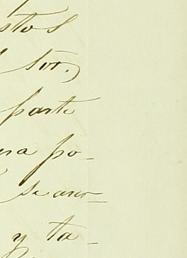 stos
sor.)
parte
ra po-
se aco-
y ta-